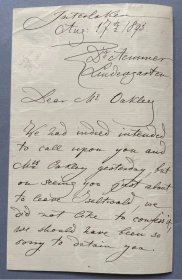 Interlaken
Aug. 17th 1893
Dear Mr Oakley
We had indeed intended
to call upon you and
Mrs Oakley yesterday but
on seeing you just about
to leave Iseltwald we
did not like to
we should have been so
sorry to detain you.